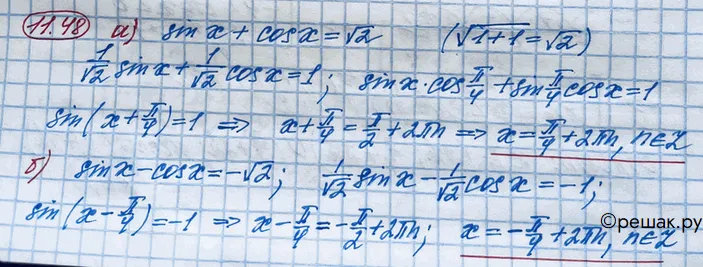 11.48 а) sin x + cos x = √2 (√1+1 = √2)
1/√2 sin x + 1/√2 cos x = 1; sin x · cos π/4 + sin π/4 cos x = 1
sin(x + π/4) = 1 ⇒ x + π/4 = π/2 + 2πn ⇒ x = π/4 + 2πn, n∈Z
б) sin x - cos x = -√2; 1/√2 sin x - 1/√2 cos x = -1;
sin(x - π/4) = -1 ⇒ x - π/4 = -π/2 + 2πn; x = -π/4 + 2πn, n∈Z
©решак.ру